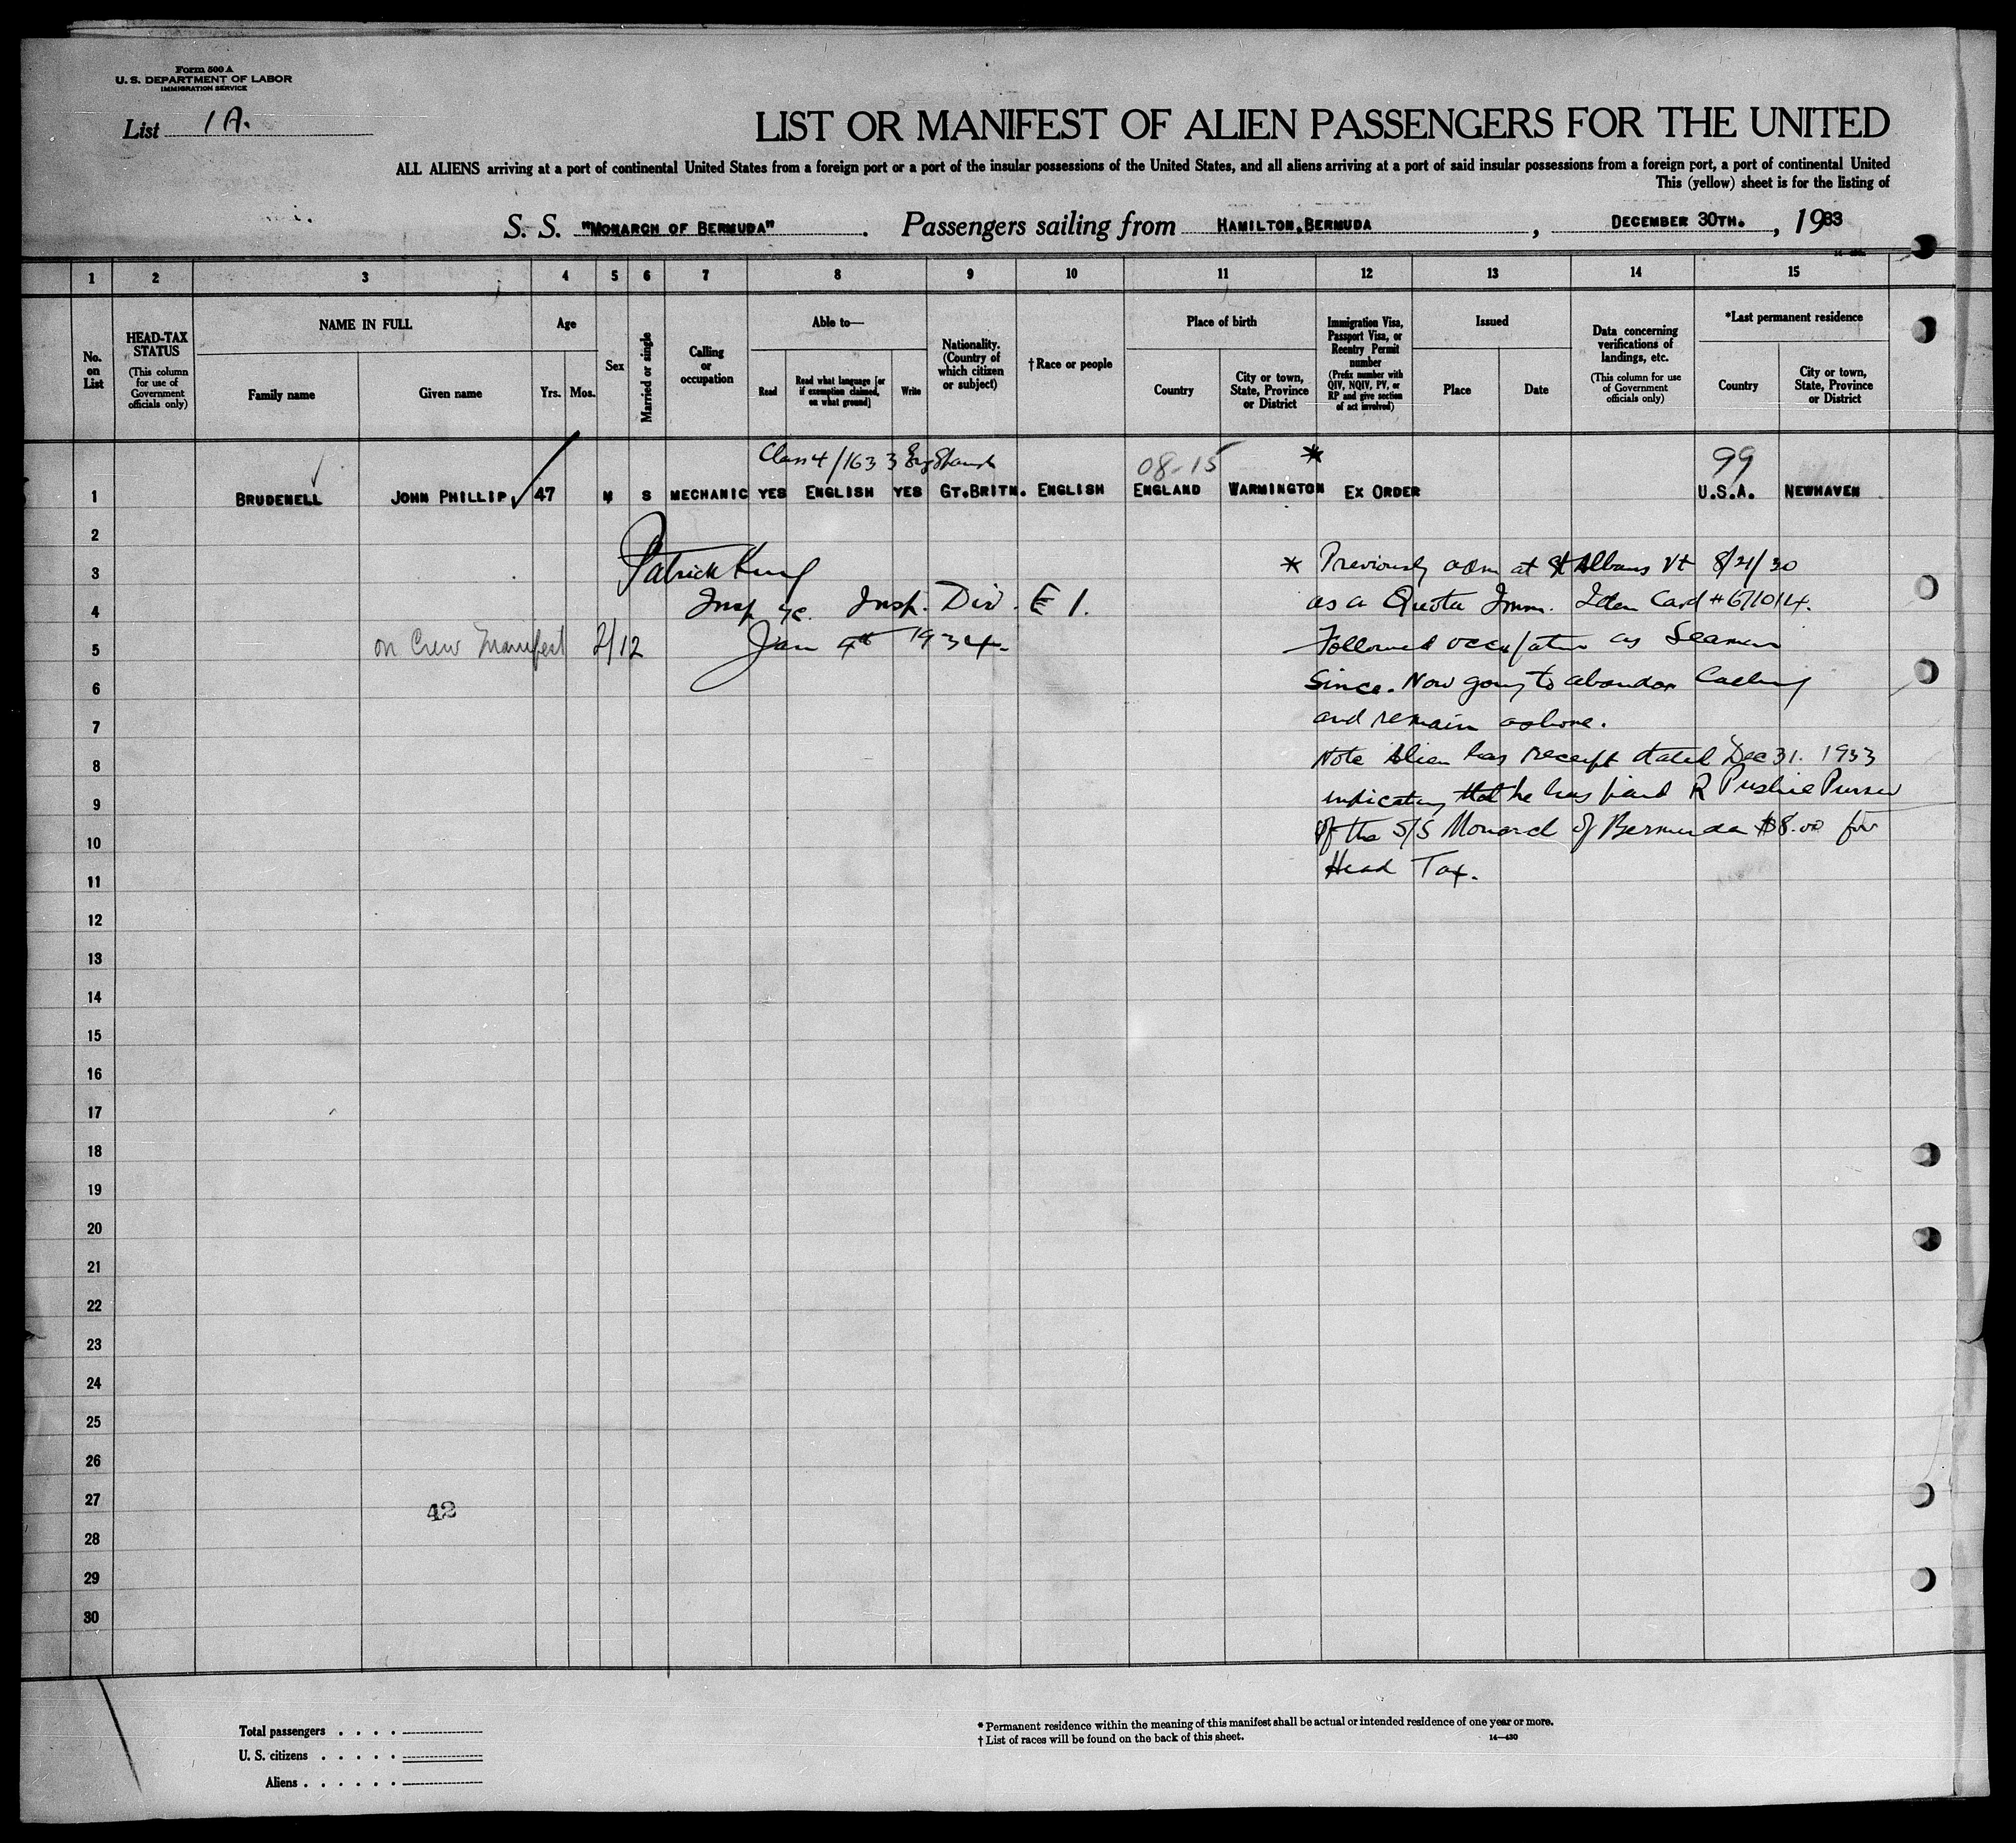 Form 500 A
U. S. DEPARTMENT OF LABOR
IMMIGRATION SERVICE
List 1A.
LIST OR MANIFEST OF ALIEN PASSENGERS FOR THE UNITED
ALL ALIENS arriving at a port of continental United States from a foreign port or a port of the insular possessions of the United States, and all aliens arriving at a port of said insular possessions from a foreign port, a port of continental United
This (yellow) sheet is for the listing of
S. S. "MONARCH OF BERMUDA". Passengers sailing from HAMILTON.BERMUDA, DECEMBER 30TH., 1933
1 2 3 4 5 6 7 8 9 10 11 12 13 14 15
No. on List
HEAD-TAX STATUS (This column for use of Government officials only)
NAME IN FULL
Family name
Given name
Age
Yrs.
Mos.
Sex
Married or single
Calling or occupation
Able to—
Read
Read what language [or if exemption claimed, on what ground]
Write
Nationality. (Country of which citizen or subject)
†Race or people
Place of birth
Country
City or town, State, Province or District
Immigration Visa, Passport Visa, or Reentry Permit number (Prefix number with QIV, NQIV, PV, or RP and give section of act involved)
Issued
Place
Date
Data concerning verifications of landings, etc. (This column for use of Government officials only)
*Last permanent residence
Country
City or town, State, Province or District
Class 4/1633 08-15 * 99
1 BRUDENELL JOHN PHILLIP. 47 M S MECHANIC YES ENGLISH YES GT.BRITN. ENGLISH ENGLAND WARMINGTON EX ORDER U.S.A. NEWHAVEN
2
Patrick King
3 * Previously adm at St Albans Vt 8/21/30
4 Insp Insp. Div. E 1. as a Quota Imm. Iden Card #671014.
5 on Crew Manifest 2/12 Jan 4th 1934. Followed occupation as Seaman
6 Since. Now going to abandon Calling
7 and remain ashore.
8 Note Alien has receipt dated Dec 31. 1933
9 indicating that he has paid R Purser
10 of the S/S Monarch of Bermuda $8.00 for
11 Head Tax.
12
13
14
15
16
17
18
19
20
21
22
23
24
25
26
27 42
28
29
30
Total passengers . . . .
U. S. citizens . . . . .
Aliens . . . . . .
* Permanent residence within the meaning of this manifest shall be actual or intended residence of one year or more.
† List of races will be found on the back of this sheet. 14—430